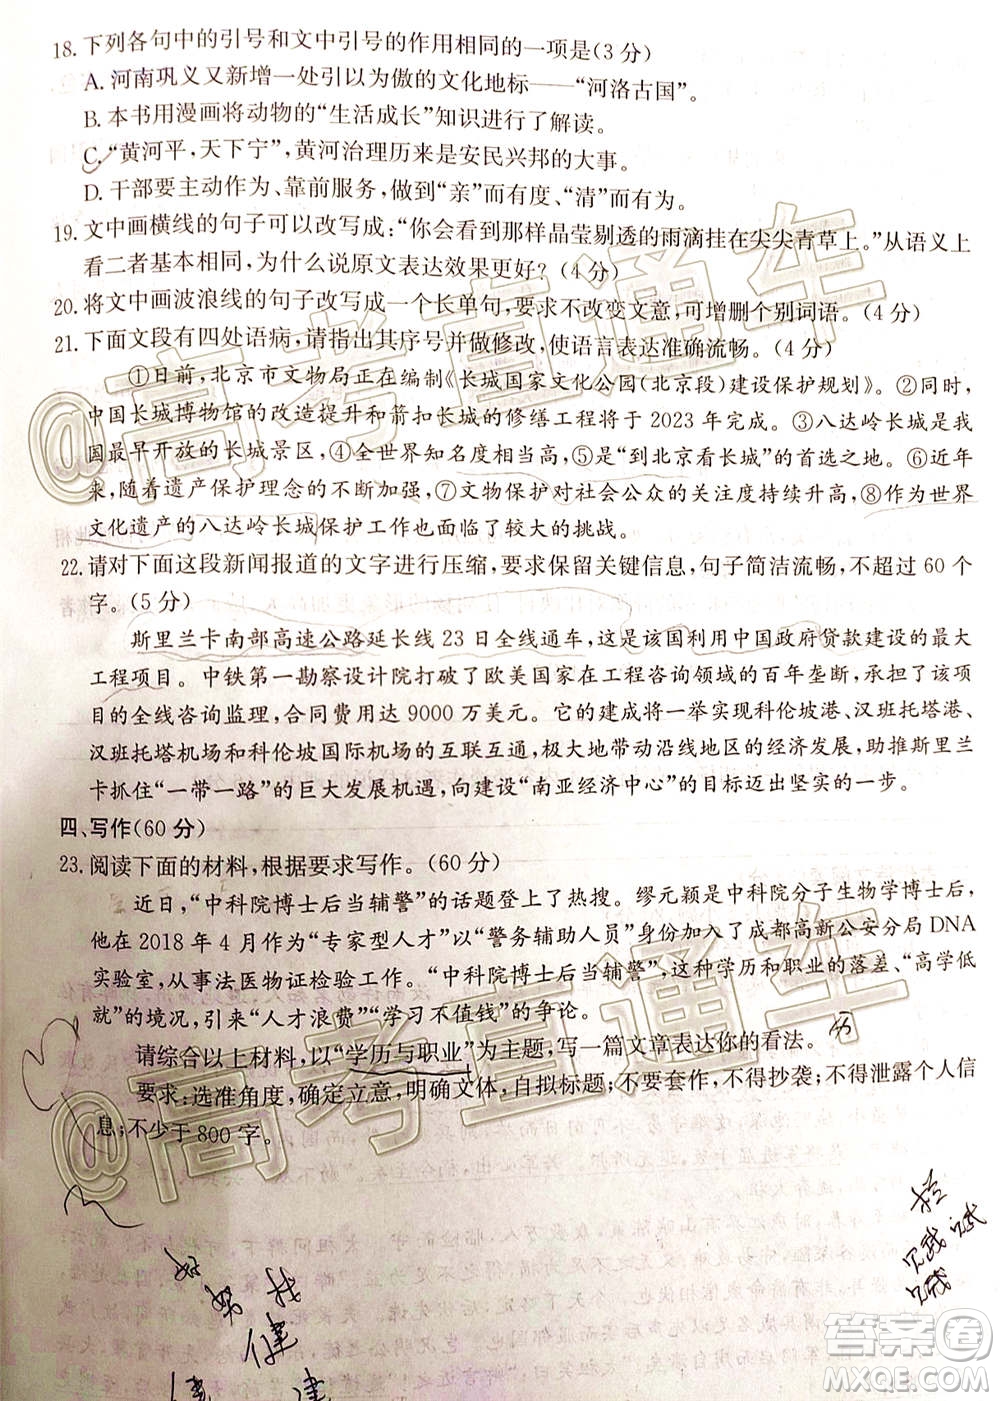 18. 下列各句中的引号和文中引号的作用相同的一项是(3 分)
A. 河南巩义又新增一处引以为傲的文化地标——“河洛古国”。
B. 本书用漫画将动物的“生活成长”知识进行了解读。
C. “黄河平,天下宁”,黄河治理历来是安民兴邦的大事。
D. 干部要主动作为、靠前服务,做到“亲”而有度、“清”而有为。
19. 文中画横线的句子可以改写成:“你会看到那样晶莹剔透的雨滴挂在尖尖青草上。”从语义上
看二者基本相同,为什么说原文表达效果更好? (4 分)
20. 将文中画波浪线的句子改写成一个长单句,要求不改变文意,可增删个别词语。(4 分)
21. 下面文段有四处语病,请指出其序号并做修改,使语言表达准确流畅。(4 分)
①日前,北京市文物局正在编制《长城国家文化公园(北京段)建设保护规划》。②同时,
中国长城博物馆的改造提升和箭扣长城的修缮工程将于 2023 年完成。③八达岭长城是我
国最早开放的长城景区,④全世界知名度相当高,⑤是“到北京看长城”的首选之地。⑥近年
来,随着遗产保护理念的不断加强,⑦文物保护对社会公众的关注度持续升高,⑧作为世界
文化遗产的八达岭长城保护工作也面临了较大的挑战。
22. 请对下面这段新闻报道的文字进行压缩,要求保留关键信息,句子简洁流畅,不超过 60 个
字。(5 分)
斯里兰卡南部高速公路延长线 23 日全线通车,这是该国利用中国政府贷款建设的最大
工程项目。中铁第一勘察设计院打破了欧美国家在工程咨询领域的百年垄断,承担了该项
目的全线咨询监理,合同费用达 9000 万美元。它的建成将一举实现科伦坡港、汉班托塔港、
汉班托塔机场和科伦坡国际机场的互联互通,极大地带动沿线地区的经济发展,助推斯里兰
卡抓住“一带一路”的巨大发展机遇,向建设“南亚经济中心”的目标迈出坚实的一步。
四、写作(60 分)
23. 阅读下面的材料,根据要求写作。(60 分)
近日,“中科院博士后当辅警”的话题登上了热搜。缪元颖是中科院分子生物学博士后,
他在 2018 年 4 月作为“专家型人才”以“警务辅助人员”身份加入了成都高新公安分局 DNA
实验室,从事法医物证检验工作。“中科院博士后当辅警”,这种学历和职业的落差、“高学低
就”的境况,引来“人才浪费”“学习不值钱”的争论。
请综合以上材料,以“学历与职业”为主题,写一篇文章表达你的看法。
要求:选准角度,确定立意,明确文体,自拟标题;不要套作,不得抄袭;不得泄露个人信
息;不少于 800 字。
@高考直通车
@高考直通车
答案卷
MXQE.COM